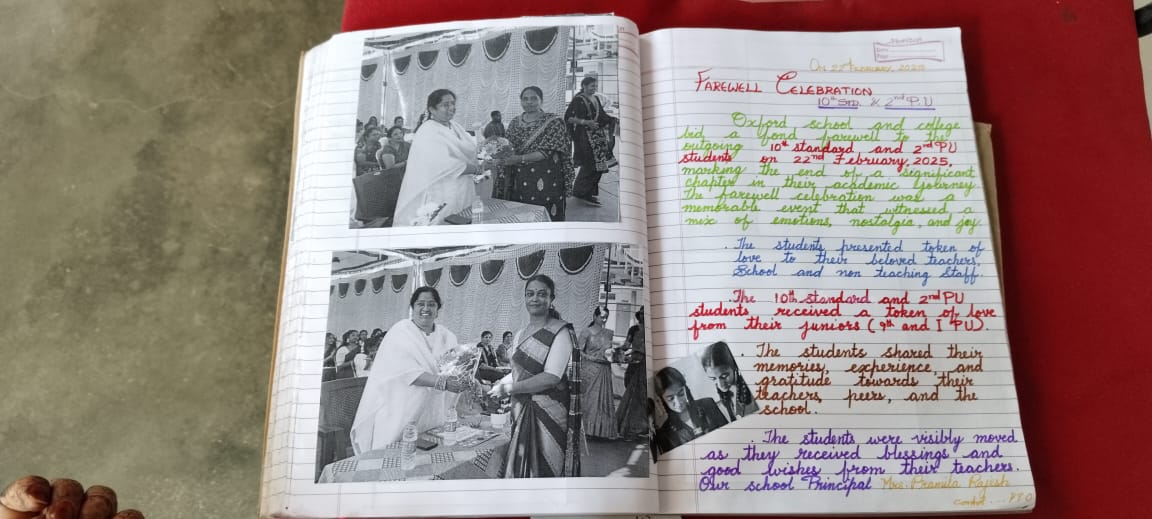 Date
Page
On 22nd February, 2025
FAREWELL CELEBRATION
10th STD. & 2nd P.U
Oxford school and college
bid a fond farewell to the
outgoing 10th standard and 2nd PU
students on 22nd February, 2025,
marking the end of a significant
chapter in their academic journey.
The farewell celebration was a
memorable event that witnessed a
mix of emotions, nostalgia, and joy.
. The students presented token of
love to their beloved teachers,
School and non teaching staff.
. The 10th standard and 2nd PU
students received a token of love
from their juniors (9th and I PU).
. The students shared their
memories, experience, and
gratitude towards their
teachers, peers, and the
school.
. The students were visibly moved
as they received blessings and
good wishes from their teachers.
Our school Principal Mrs. Pramila Rajesh
contd.... P.T.O